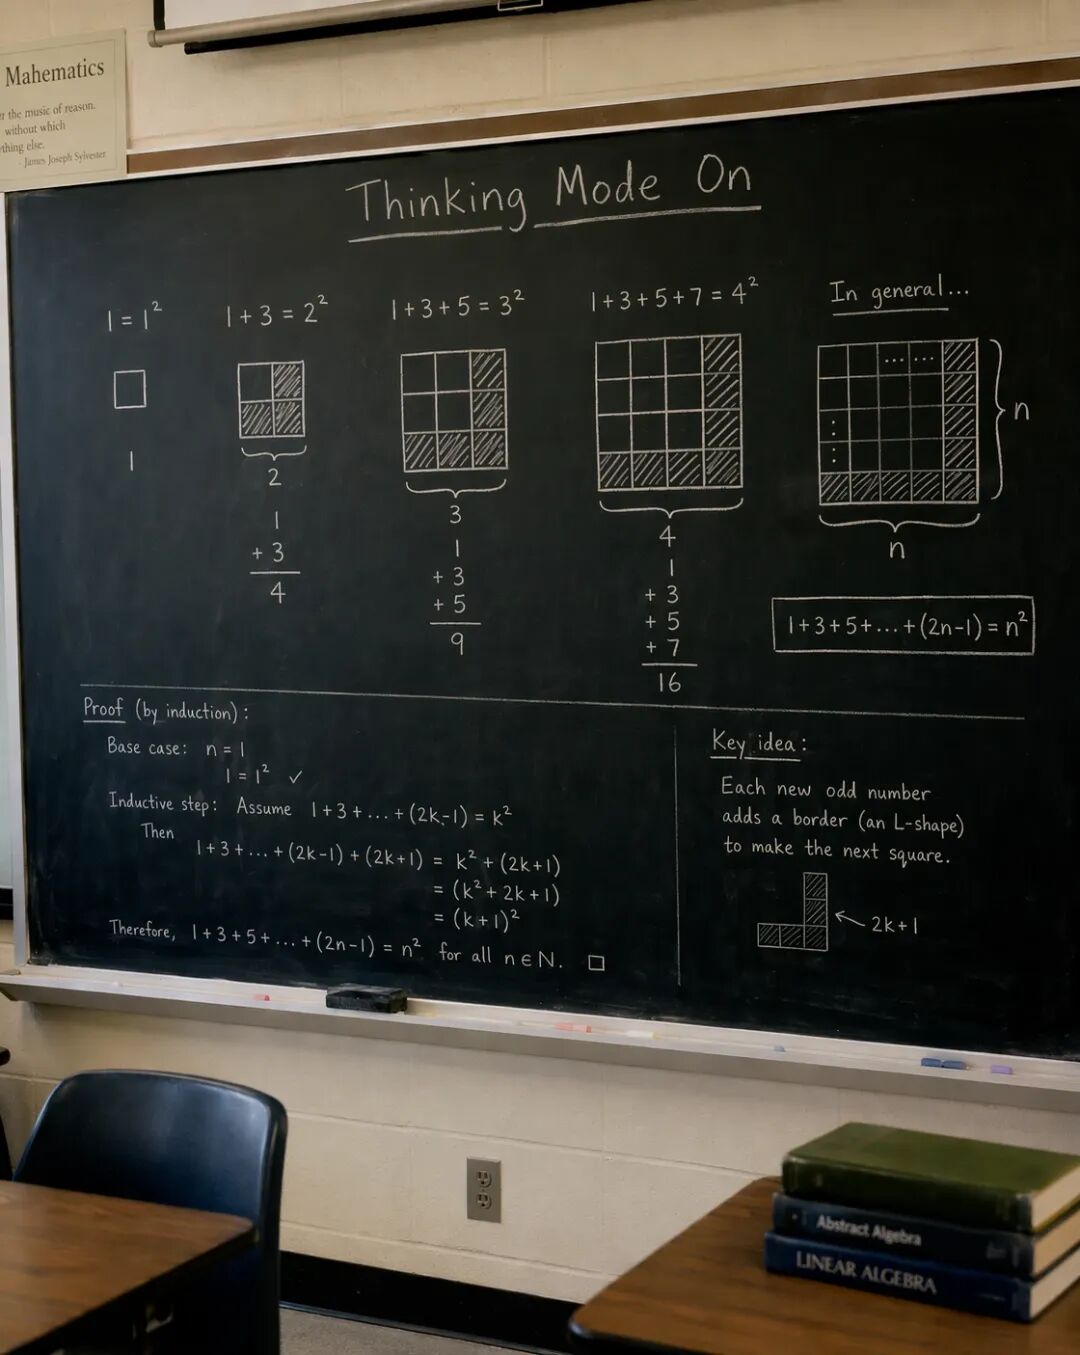 Mahematics
the music of reason.
without which
thing else.
- James Joseph Sylvester
Thinking Mode On
1 = 1²
1 + 3 = 2²
1 + 3 + 5 = 3²
1 + 3 + 5 + 7 = 4²
In general...
1
2
1
+ 3
4
3
1
+ 3
+ 5
9
4
1
+ 3
+ 5
+ 7
16
... ...
n
n
1+3+5+...+(2n-1) = n²
Proof (by induction):
Base case: n = 1
1 = 1² ✓
Inductive step: Assume 1+3+...+(2k-1) = k²
Then
1+3+...+(2k-1)+(2k+1) = k² + (2k+1)
= (k² + 2k + 1)
= (k+1)²
Therefore, 1+3+5+...+(2n-1) = n² for all n ∈ N. □
Key idea:
Each new odd number
adds a border (an L-shape)
to make the next square.
2k+1
Abstract Algebra
LINEAR ALGEBRA